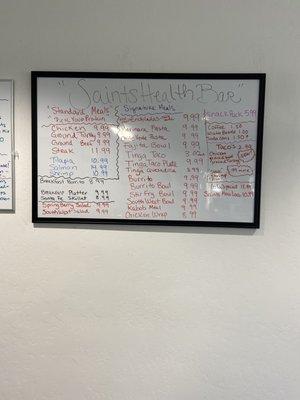 "Saints Health Bar"
Standard Meals
Pick Your Protein
Chicken 9.99
Ground Turkey 9.99
Ground Beef 9.99
Steak 11.99
Tilapia 10.99
Salmon 14.99
Shrimp 10.99
Breakfast Burrito 8.99
Breakfast Platter 9.99
Santa Fe Skillet 8.99
Spring Berry Salad 9.99
Southwest Salad 9.99
Signature Meals
Enchiladas 9.99
Marinara Pasta 9.99
Pasta 9.99
Fajita Bowl 9.99
Tinga Taco 3.00
Tinga Taco Plate 9.99
Tinga Quesadilla
Burrito 9.99
Burrito Bowl 9.99
Stir Fry Bowl 9.99
Southwest Bowl 9.99
Kabob Meal 9.99
Chicken Wrap 8.99
Snack Pack 5.99
Coffee 1.50
Water Bottle 1.00
Tacos
10.99